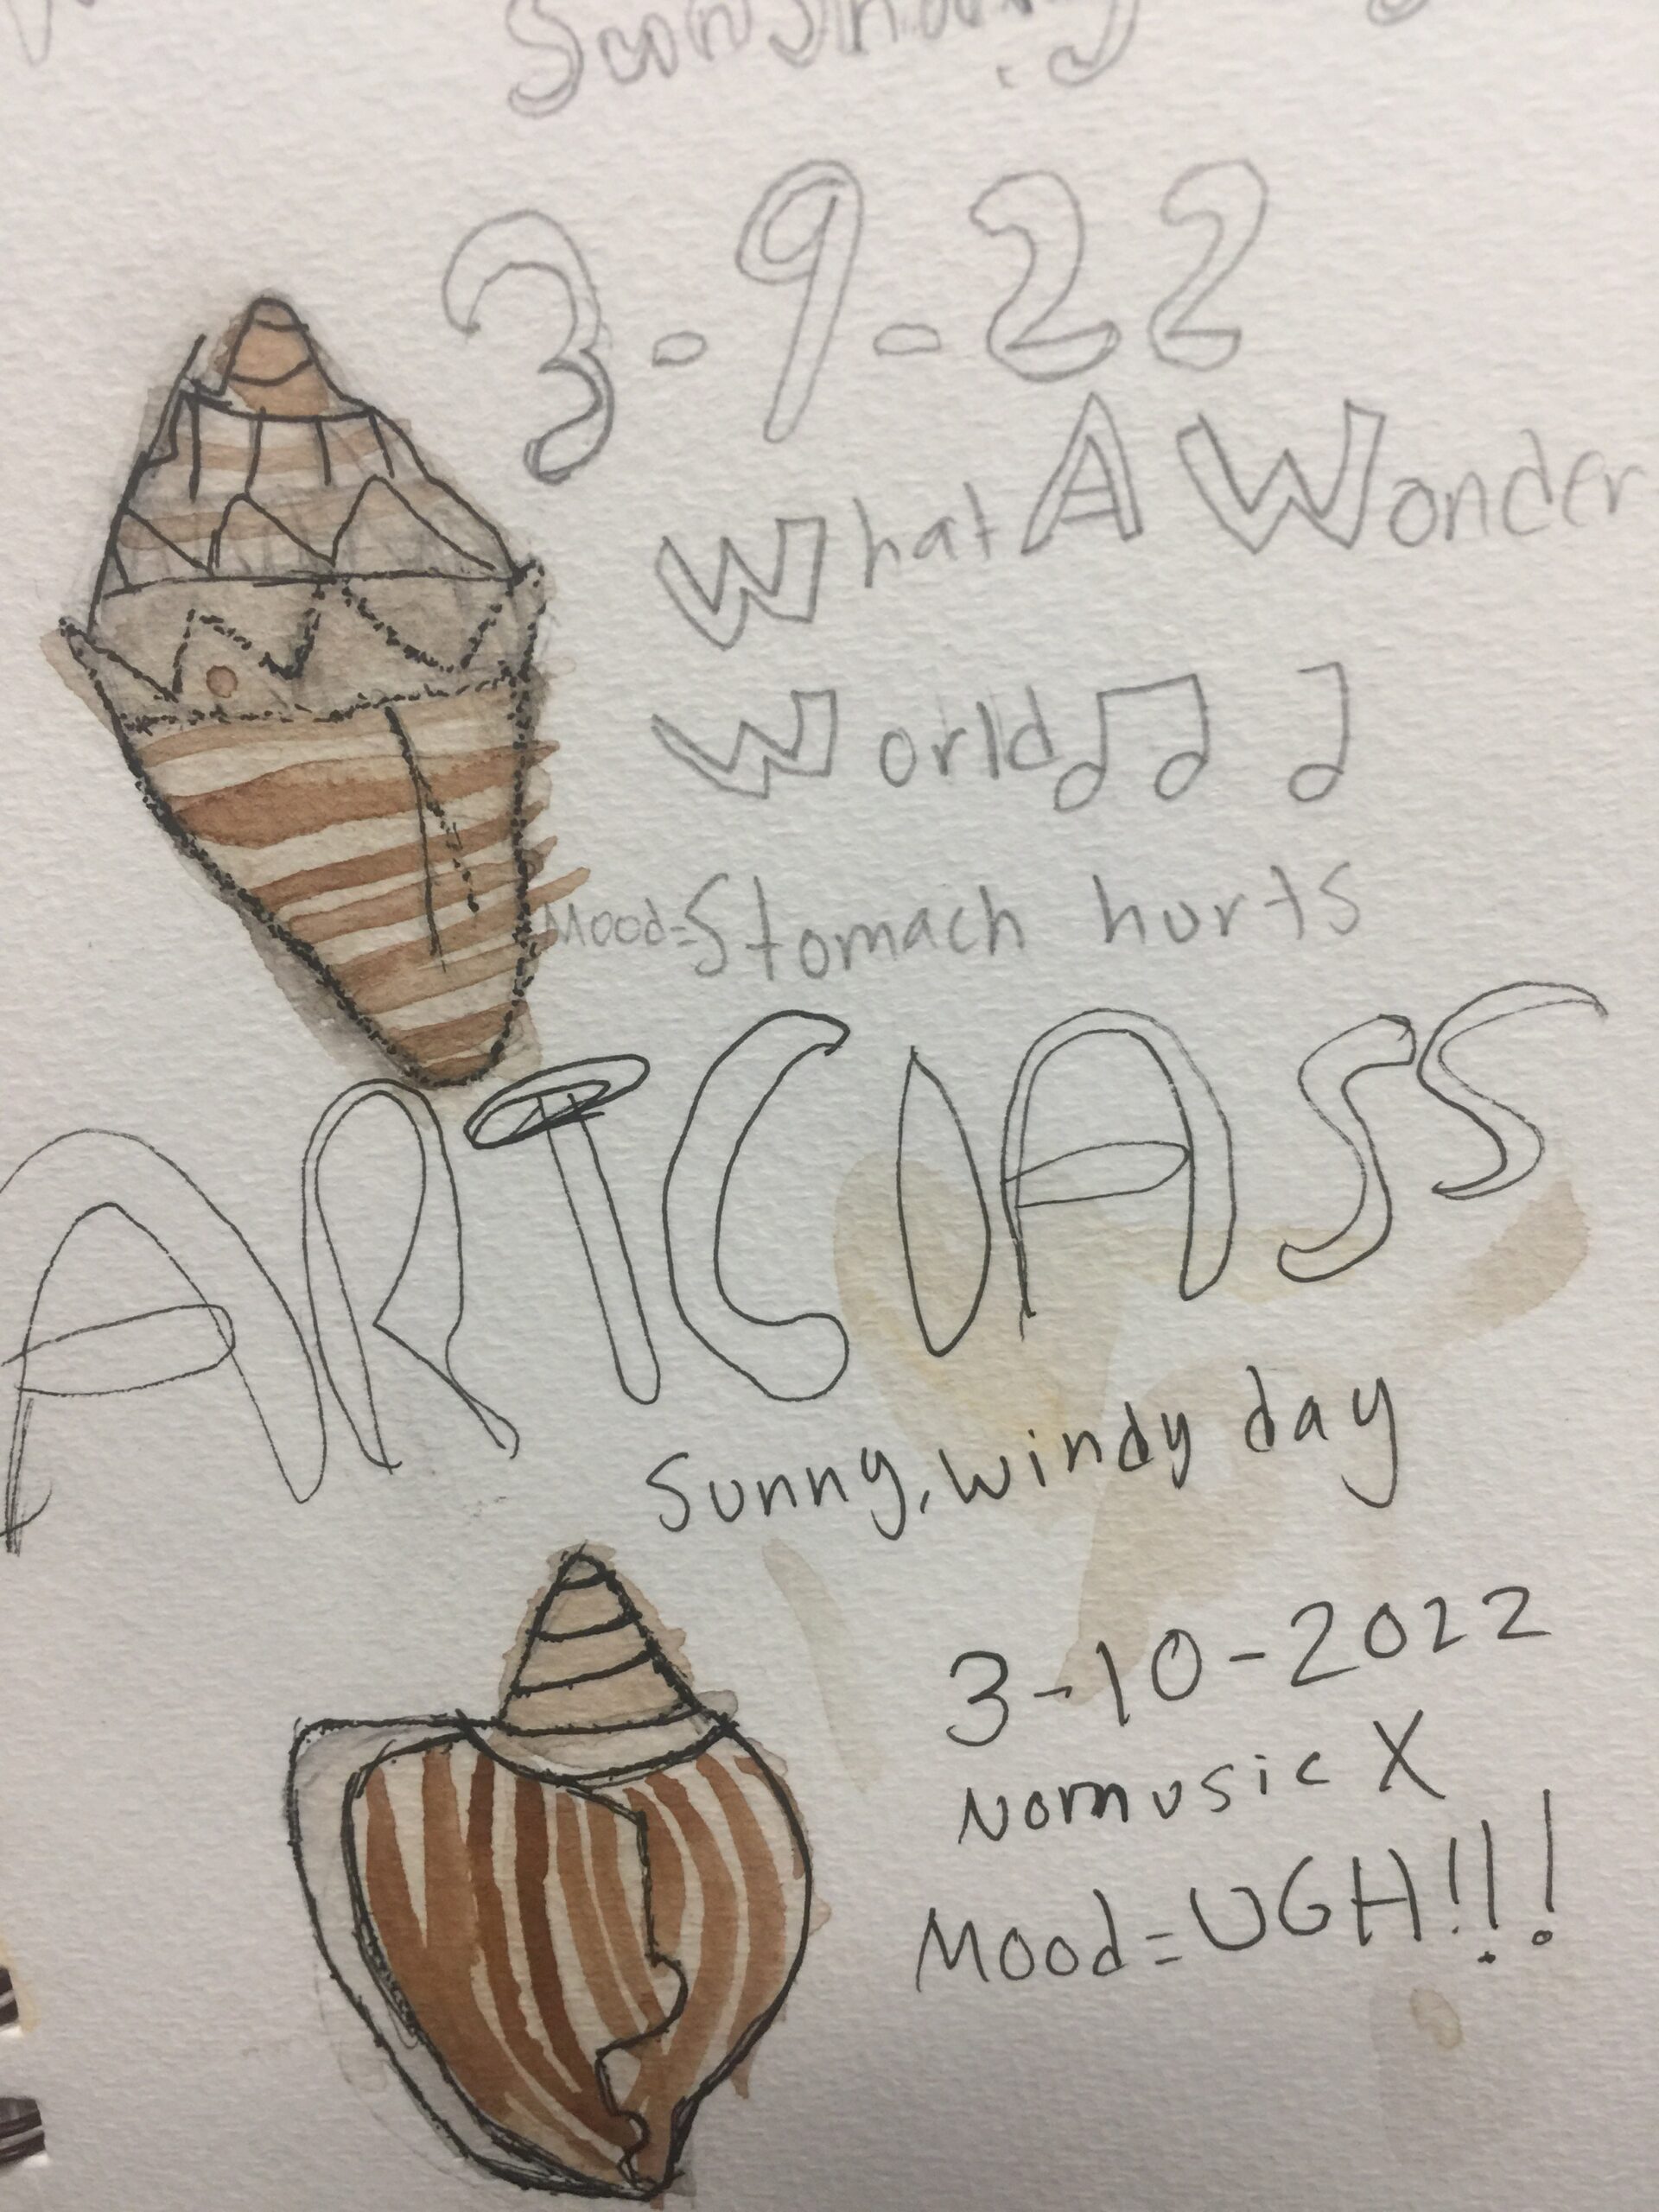 3-9-22
What A Wonder
World
Mood=Stomach hurts
ARTClASS
Sunny, windy day
3-10-2022
Nomusic X
Mood=UGH!!!